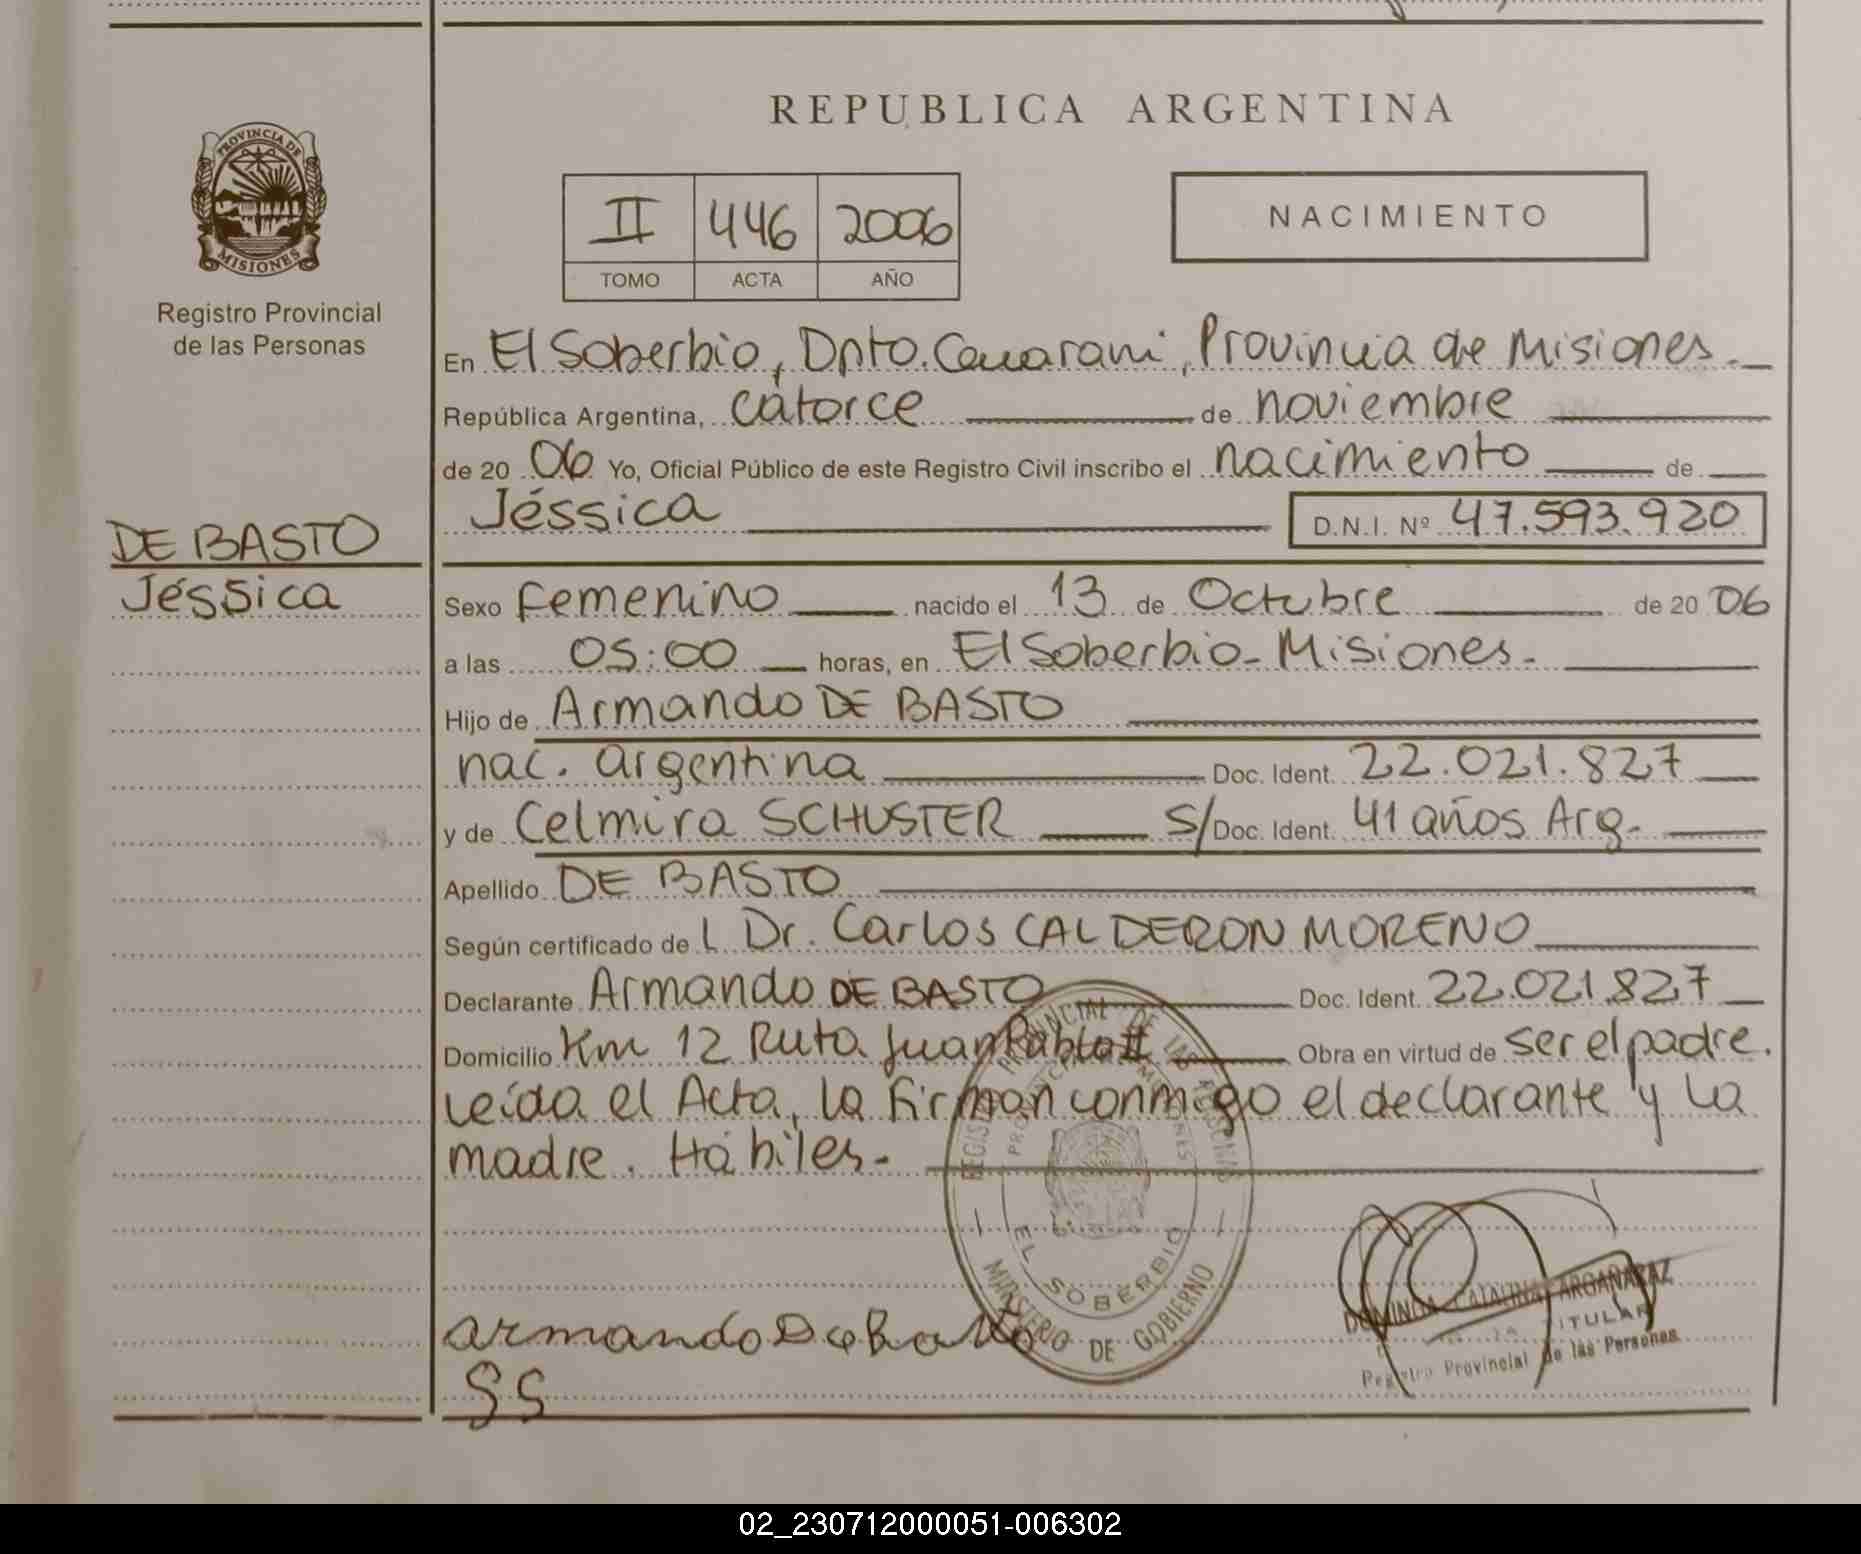 REPUBLICA ARGENTINA
PROVINCIA DE
MISIONES
Registro Provincial
de las Personas
II 446 2006
TOMO ACTA AÑO
NACIMIENTO
En El Soberbio, Dpto. Guarani, Provincia de Misiones.
República Argentina, catorce de noviembre
de 20 06 Yo, Oficial Público de este Registro Civil inscribo el nacimiento de
Jéssica D.N.I. Nº 47.593.920
DE BASTO
Jéssica
Sexo femenino nacido el 13 de Octubre de 20 06
a las 05:00 horas, en El Soberbio - Misiones.
Hijo de Armando DE BASTO
nac. argentina Doc. Ident. 22.021.827
y de Celmira SCHUSTER S/ Doc. Ident. 41 años Arg.
Apellido DE BASTO
Según certificado de L Dr. Carlos CALDERON MORENO
Declarante Armando DE BASTO Doc. Ident. 22.021.827
Domicilio Km 12 Ruta Juan Pablo II Obra en virtud de ser el padre.
Leída el Acta, la firman conmigo el declarante y la
madre. Hábiles.-
REGISTRO PROVINCIAL DE LAS PERSONAS
PROVINCIA DE MISIONES
EL SOBERBIO
MINISTERIO DE GOBIERNO
CATALINA ARGAÑARAZ
TITULAR
Registro Provincial de las Personas
armando De Basto
SS
02_230712000051-006302